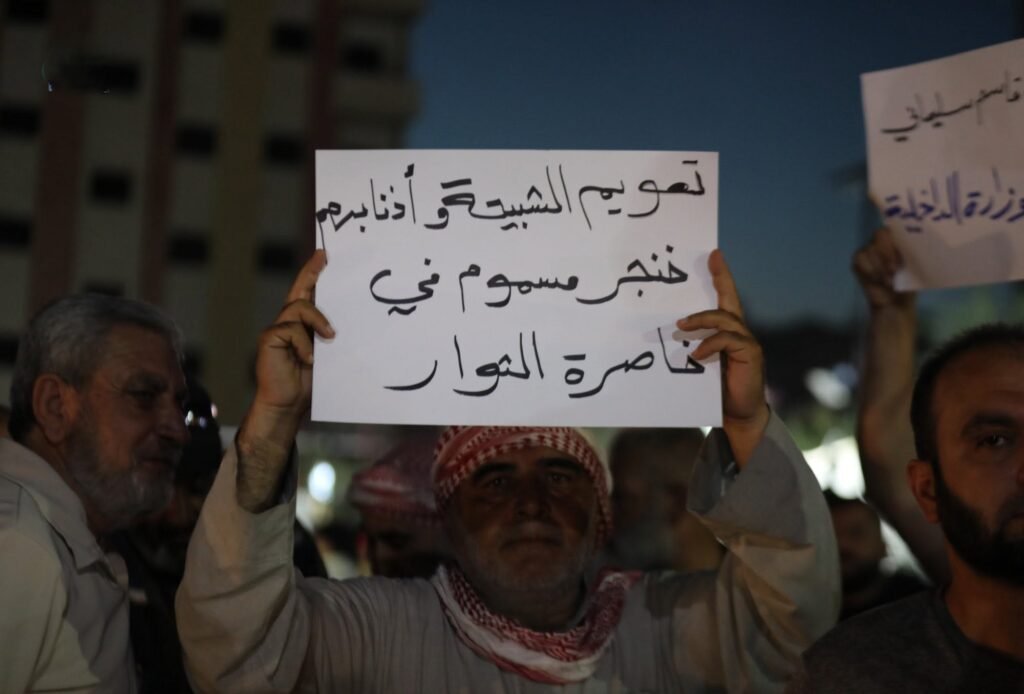 تعويم الشبيحة و أذنابهم
خنجر مسموم في
خاصرة الثوار
قاسم سليماني
وزارة الداخلية